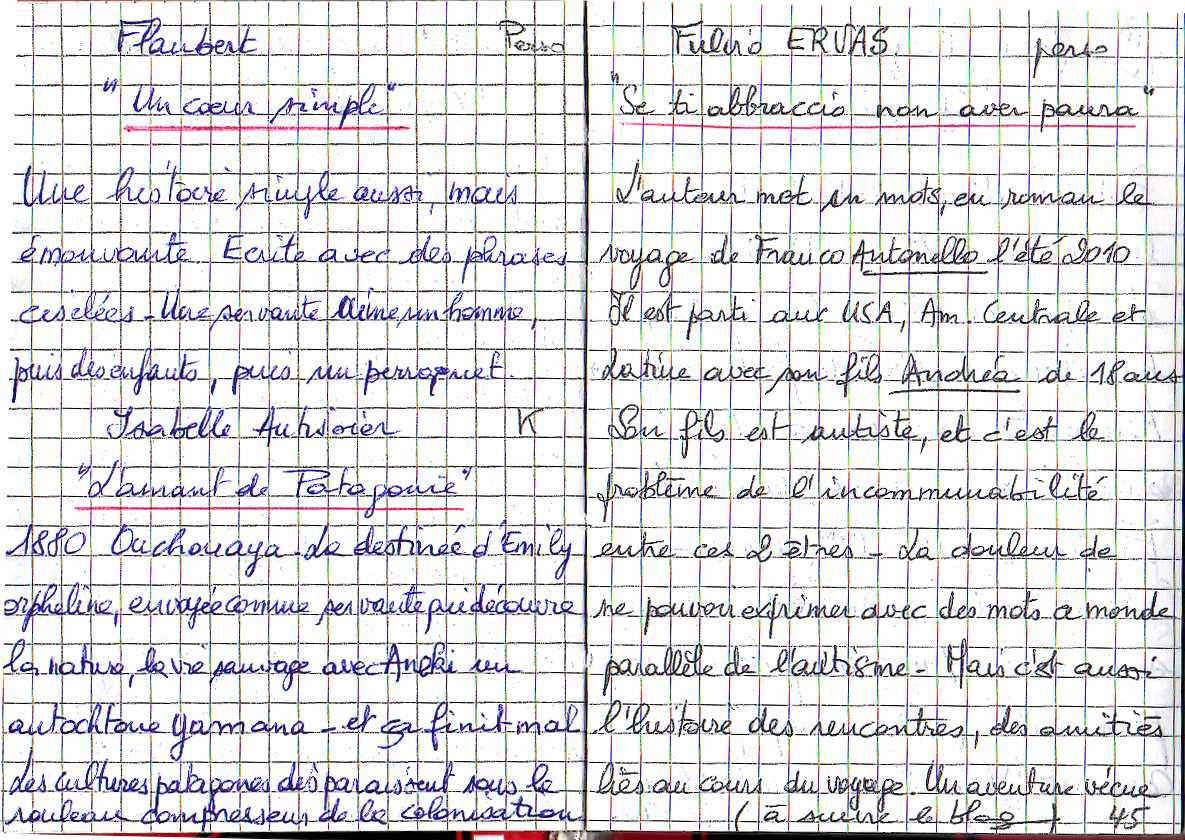 Flaubert Perso
"Un coeur simple"
Une histoire simple aussi, mais
émouvante Ecrite avec des phrases
ciselées - Une servante aime un homme,
puis des enfants, puis un perroquet.
Isabelle Autissier K
"L'amant de Patagonie"
1880 Ouchouaya. La destinée d'Emily
orpheline, envoyée comme servante qui découvre
la nature, la vie sauvage avec Aneki un
autochtone yamana - et ça finit mal
des cultures patagones disparaissent sous le
rouleau compresseur de la colonisation
Fulvio ERVAS. perso
"Se ti abbraccio non aver paura"
L'auteur met en mots, en roman le
voyage de Franco Antonello l'été 2010
Il est parti aux USA, Am. Centrale et
Latine avec son fils Andréa de 18 ans
Son fils est autiste, et c'est le
problème de l'incommunabilité
entre ces 2 êtres - La douleur de
ne pouvoir exprimer avec des mots ce monde
parallèle de l'autisme - Mais c'est aussi
l'histoire des rencontres, des amitiés
liés au cours du voyage. Un aventure vécue
(à suivre le blog) 45